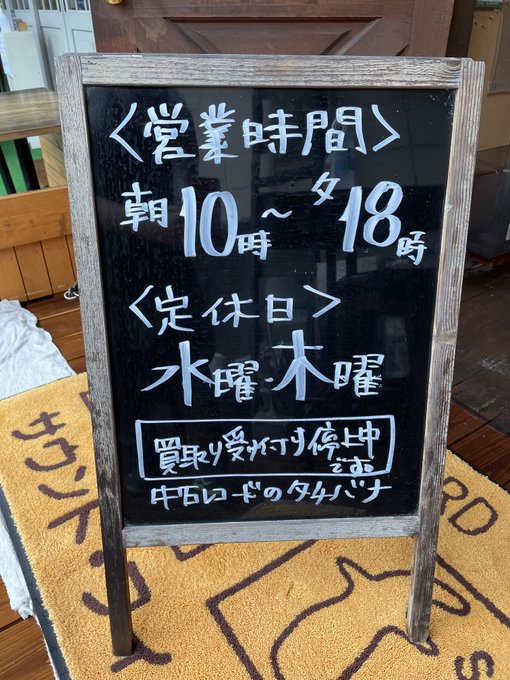 〈営業時間〉
朝10時～夕18時
〈定休日〉
水曜・木曜
買取り受付け停止中
です。
中古レコードのタチバナ
サウンド
RD